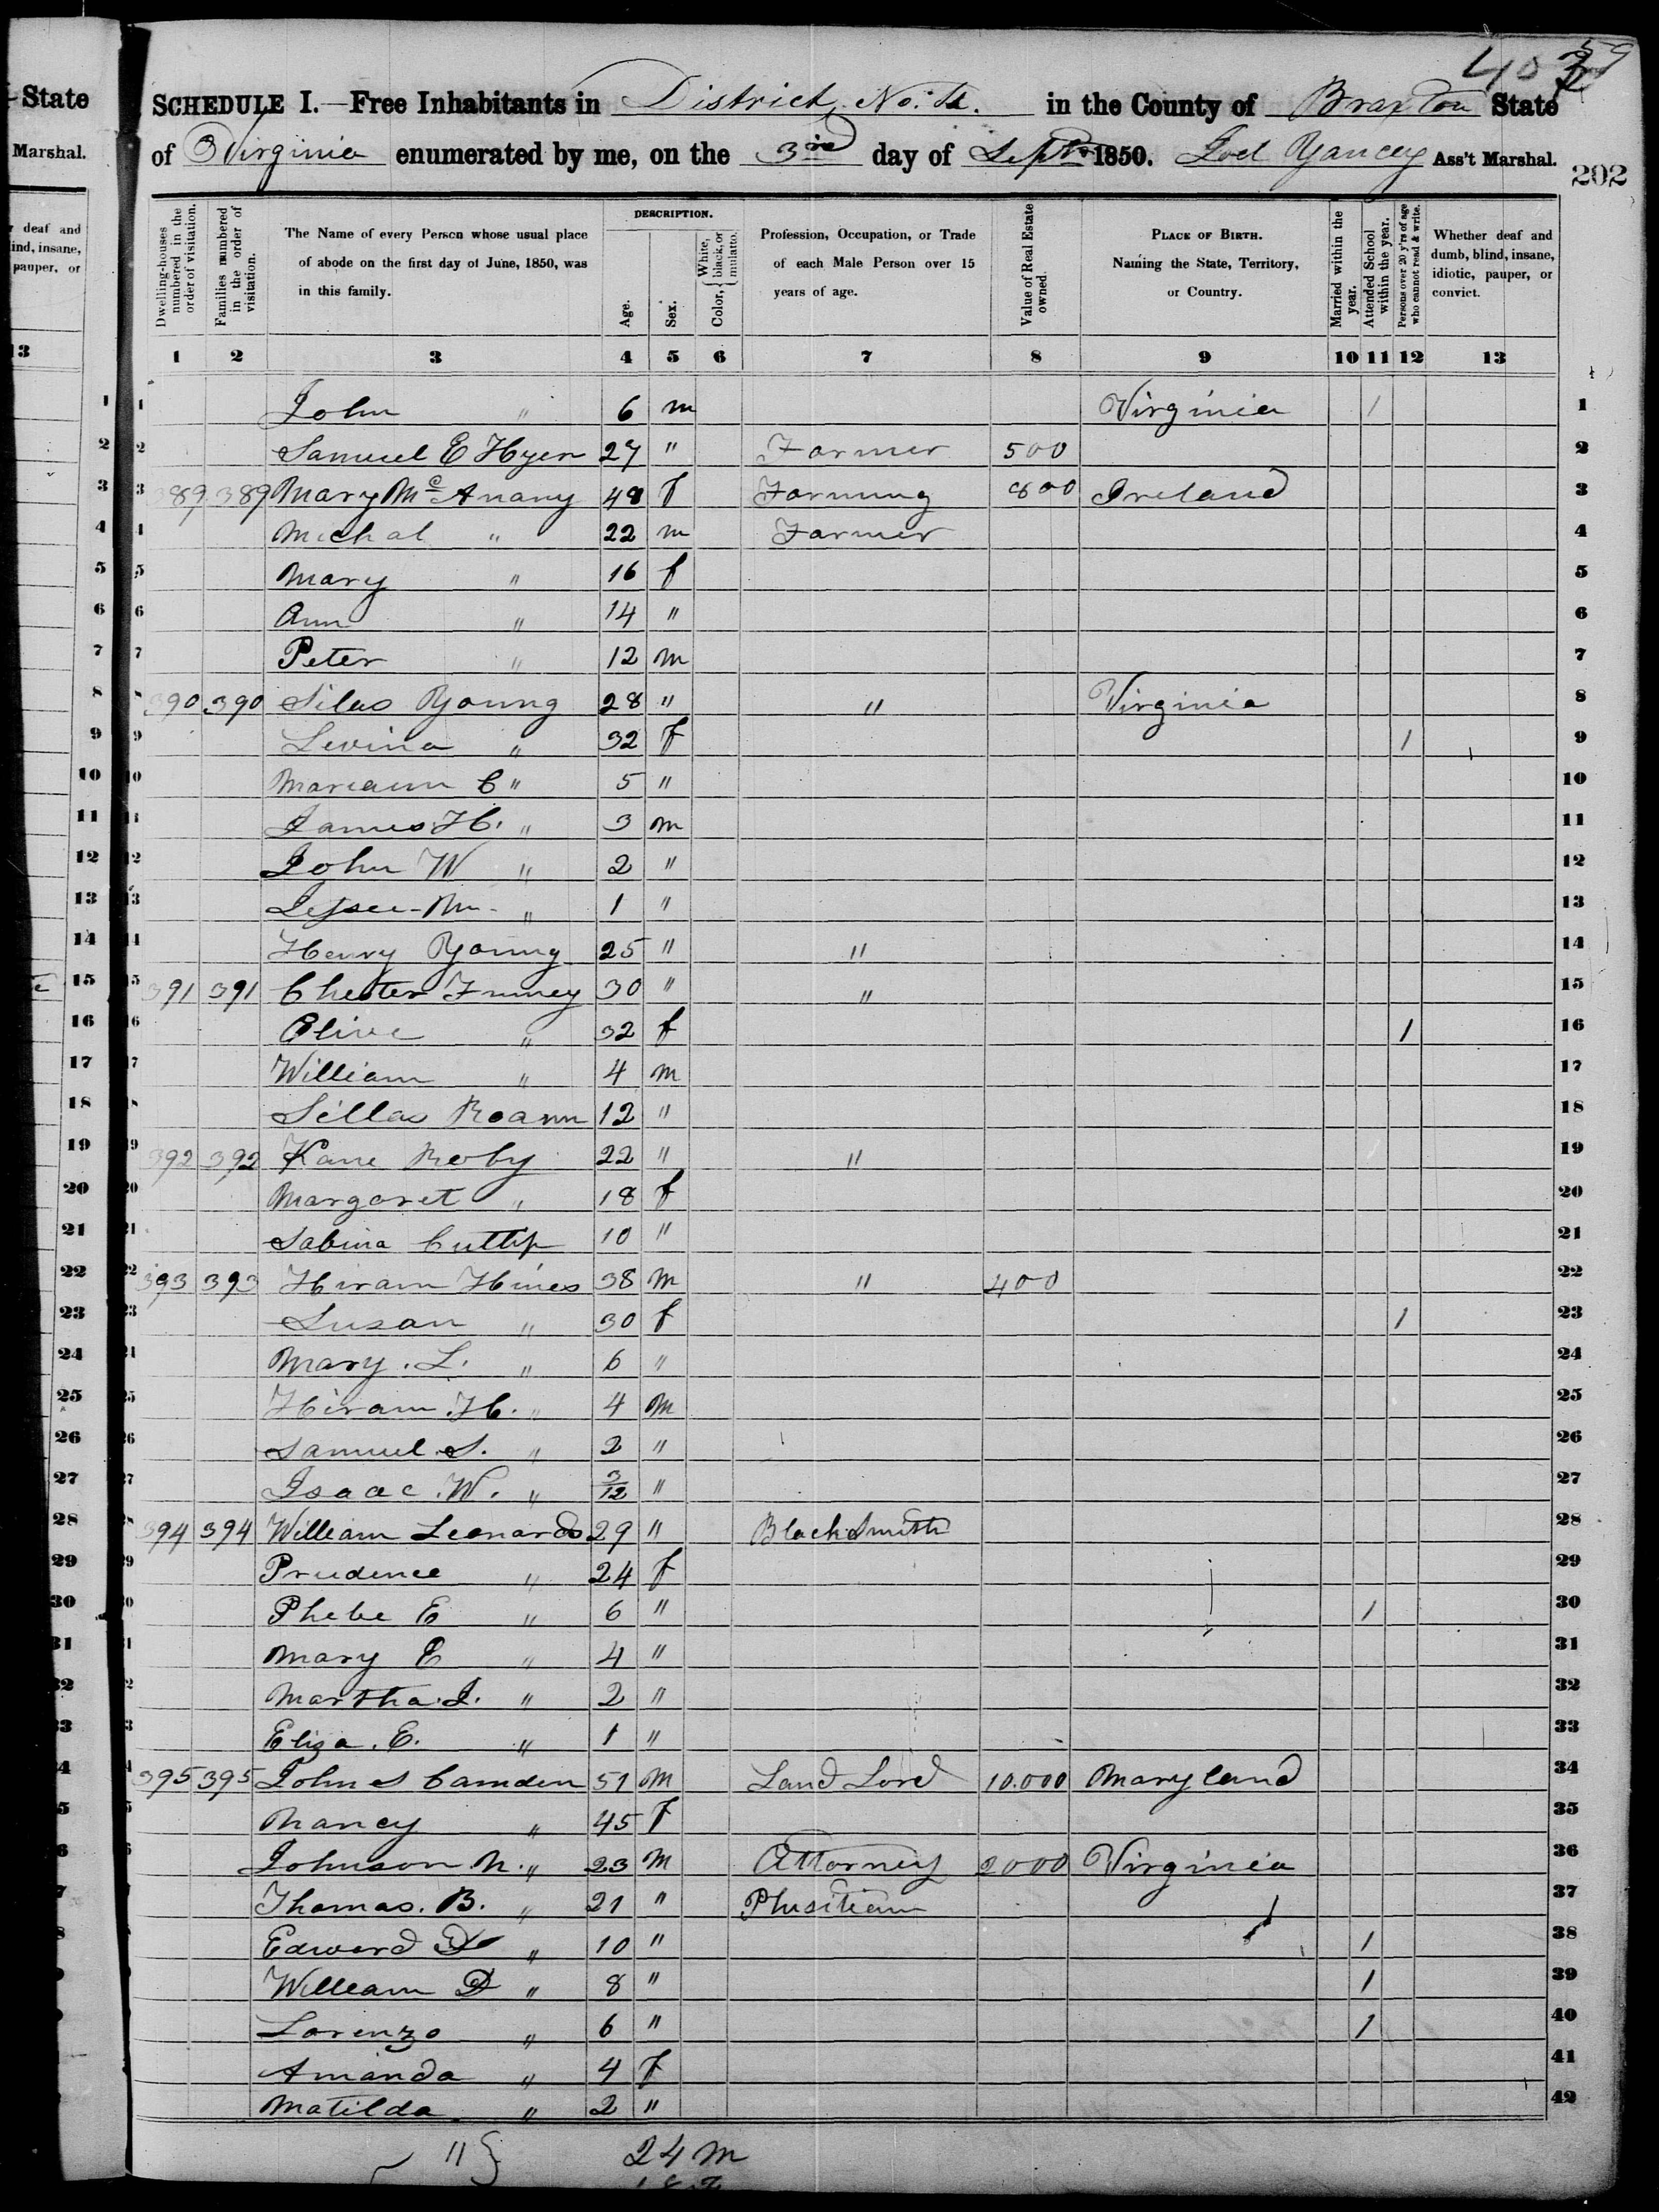 State
Marshal.
r deaf and
lind, insane,
pauper, or
13
403
59
SCHEDULE I.—Free Inhabitants in District No: in the County of Braxton State
of Virginia enumerated by me, on the 3rd day of Sept 1850. Joel Yancey Ass't Marshal.
202
Dwelling-houses numbered in the order of visitation.
Families numbered in the order of visitation.
The Name of every Person whose usual place of abode on the first day of June, 1850, was in this family.
DESCRIPTION.
Age.
Sex.
Color, { White, black, or mulatto.
Profession, Occupation, or Trade of each Male Person over 15 years of age.
Value of Real Estate owned.
PLACE OF BIRTH. Naming the State, Territory, or Country.
Married within the year.
Attended School within the year.
Persons over 20 y'rs of age who cannot read & write.
Whether deaf and dumb, blind, insane, idiotic, pauper, or convict.
1 2 3 4 5 6 7 8 9 10 11 12 13
1 John " 6 m Virginia 1 1
2 Samuel E Hyer 27 " Farmer 500 2
3 389 389 Mary Mc Anany 48 f Farming 800 Ireland 3
4 Michal " 22 m Farmer 4
5 Mary " 16 f 5
6 Ann " 14 " 6
7 Peter " 12 m 7
8 390 390 Silas Young 28 " " Virginia 8
9 Levina " 32 f 1 9
10 Mariann C " 5 " 10
11 James H. " 3 m 11
12 John W " 2 " 12
13 Jessee M " 1 " 13
14 Henry Young 25 " " 14
15 391 391 Chester 30 " " 15
16 Olive " 32 f 1 16
17 William " 4 m 17
18 Sillas Roann 12 " 18
19 392 392 Kane Roby 22 " " 19
20 Margaret " 18 f 20
21 Sabina Cutlip 10 " 21
22 393 393 Hiram Hines 38 m " 400 22
23 Susan " 30 f 1 23
24 Mary. L. " 6 " 24
25 Hiram. H. " 4 m 25
26 Samuel. S. " 2 " 26
27 Isaac. W. " 3/12 " 27
28 394 394 William Leonards 29 " BlackSmith 28
29 Prudence " 24 f 29
30 Phebe E " 6 " 1 30
31 Mary E " 4 " 31
32 Martha. J. " 2 " 32
33 Eliza. E. " 1 " 33
34 395 395 John S Camden 51 M Land Lord 10.000 Maryland 34
35 Nancy " 45 f 35
36 Johnson N. " 23 M Attorney 2000 Virginia 36
37 Thomas. B. " 21 " Phusitiam 37
38 Edward D " 10 " 1 38
39 William D " 8 " 1 39
40 Lorenzo " 6 " 1 40
41 Amanda " 4 f 41
42 Matilda " 2 " 42
11 } 24 m